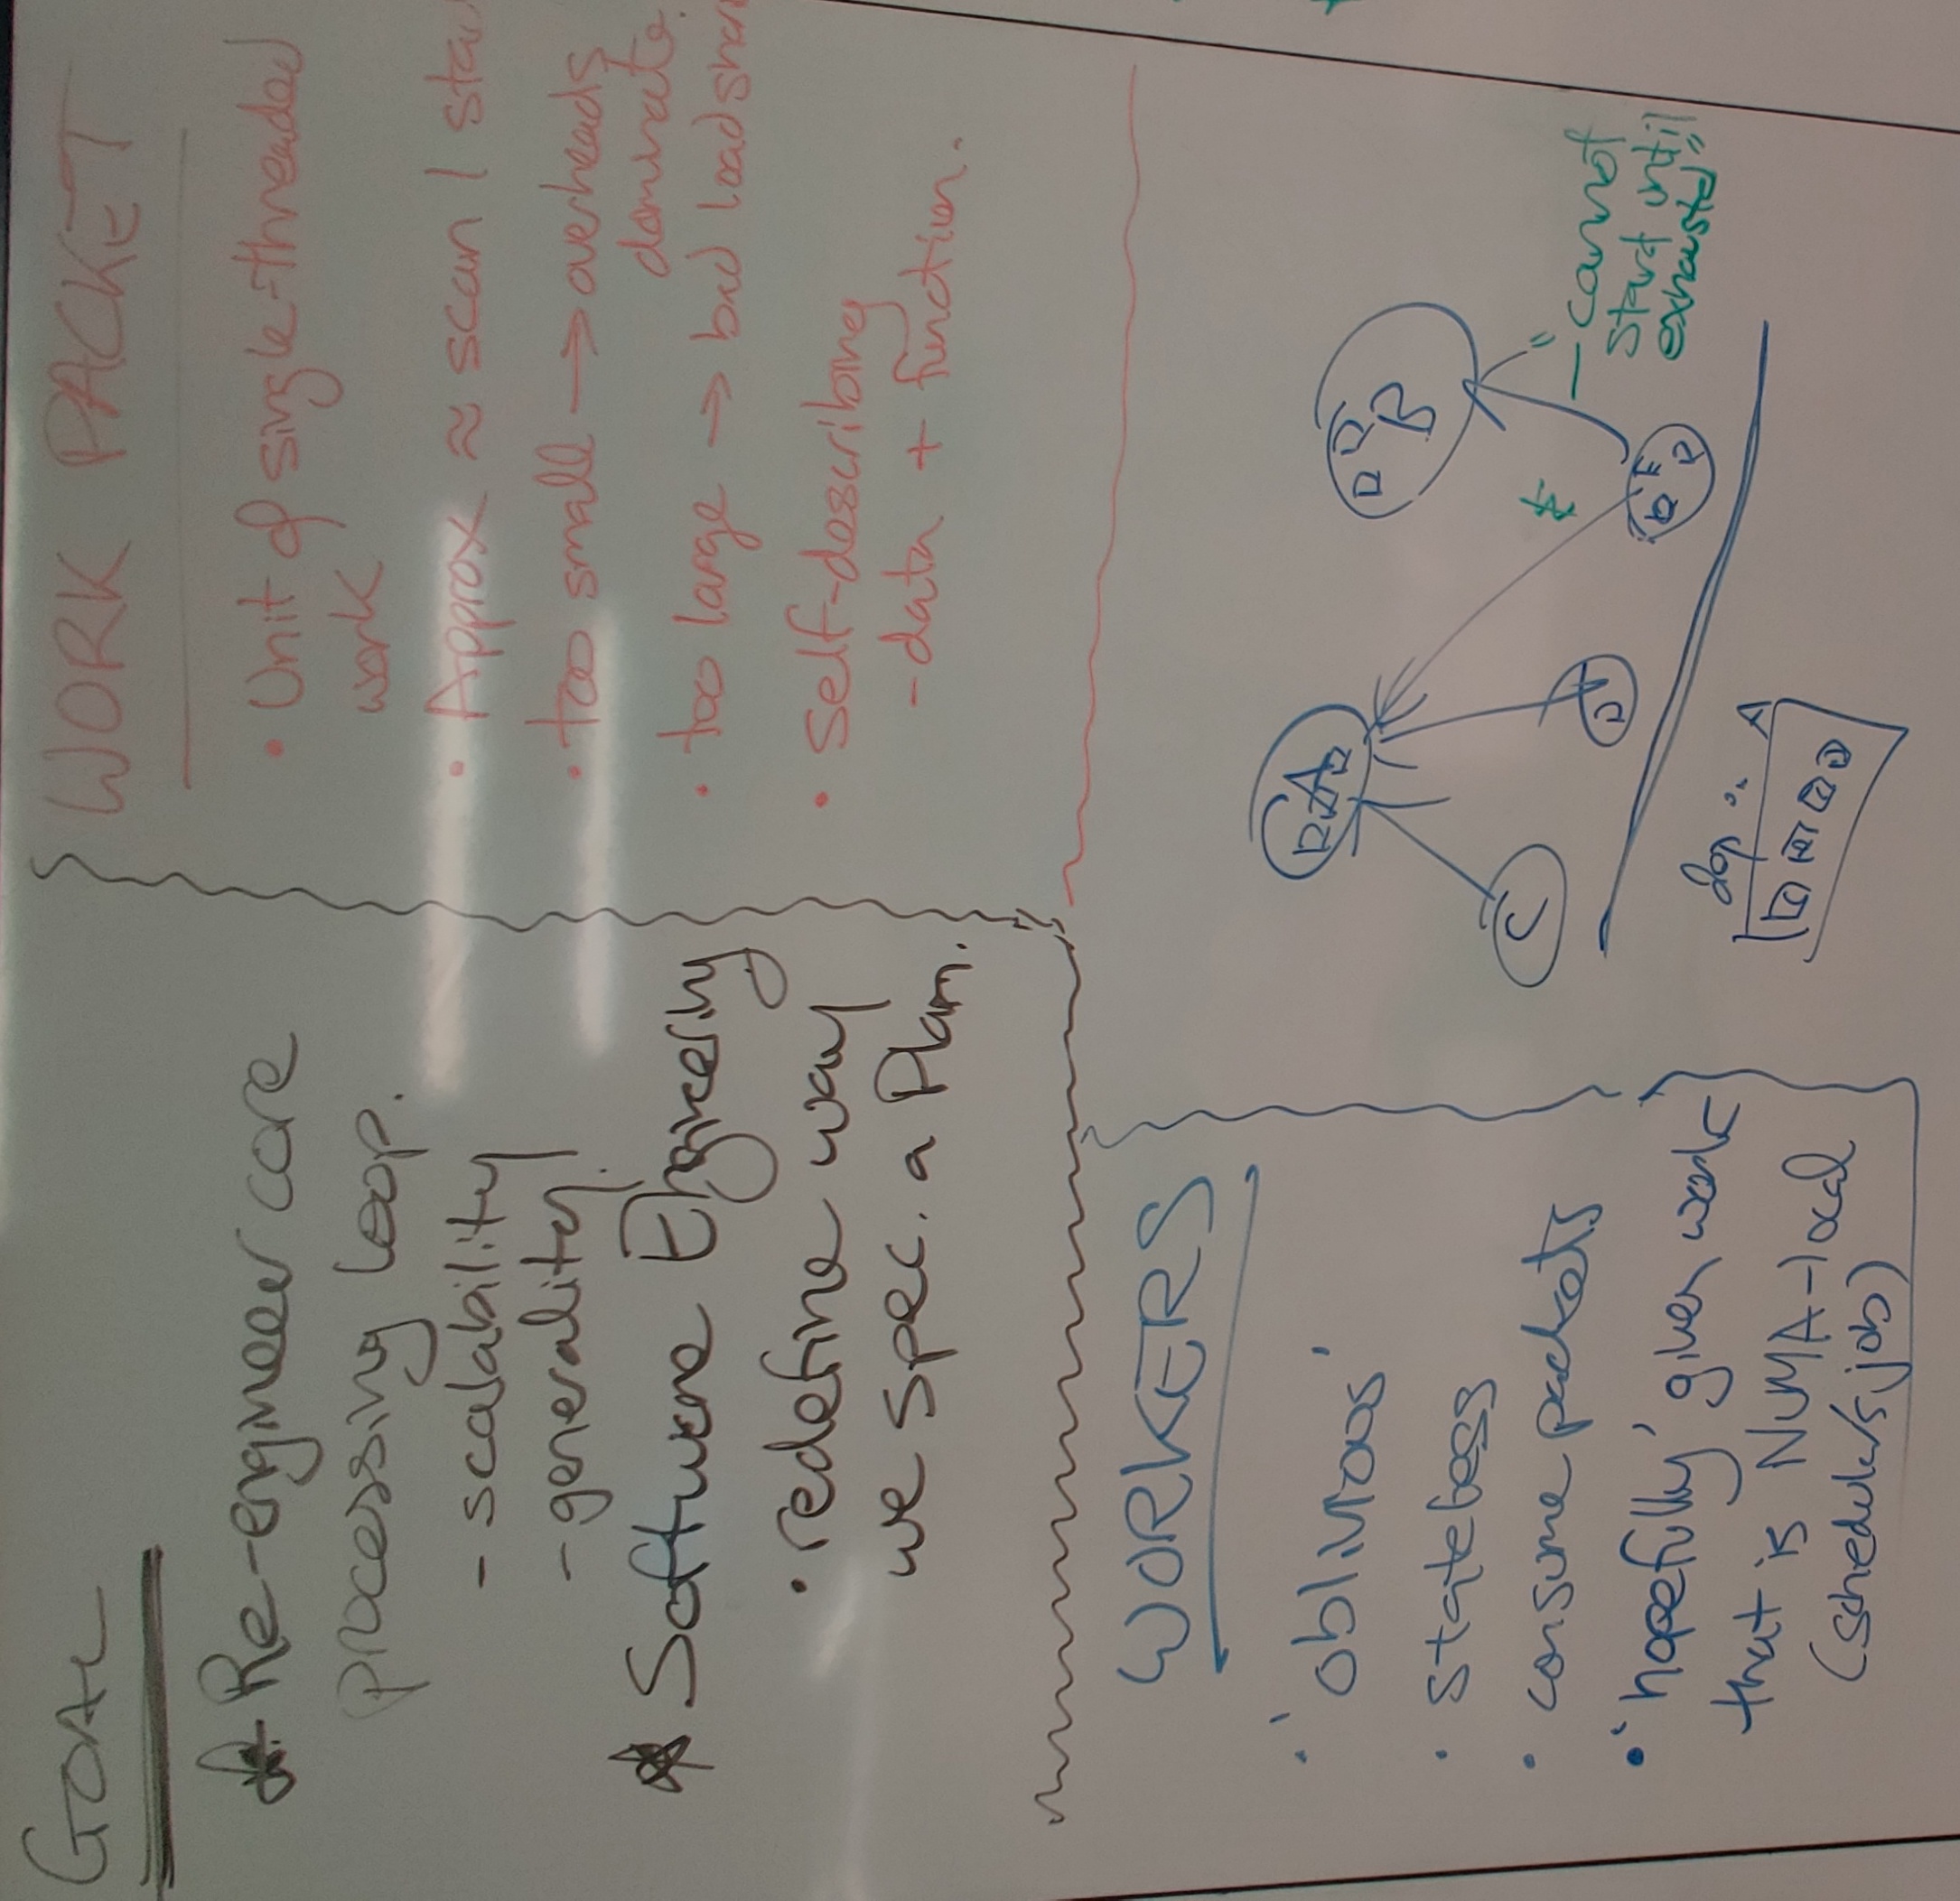 GOAL
Re-engineer core
processing loop.
- scalability
- generality.
Software Engineering
• redefine way
we spec. a Plan.
WORK PACKET
• Unit of single-threaded
work
• Approx ≈ scan 1
• too small → overheads
dominate.
• too large → bad load
• Self-describing
- data + function.
WORKERS
• 'oblivious'
• stateless
• consume packets
• 'hopefully' given work
that is NUMA-local
(scheduler's job)
A
B
C
D
E
*
— cannot
start until
"exhausted"
A